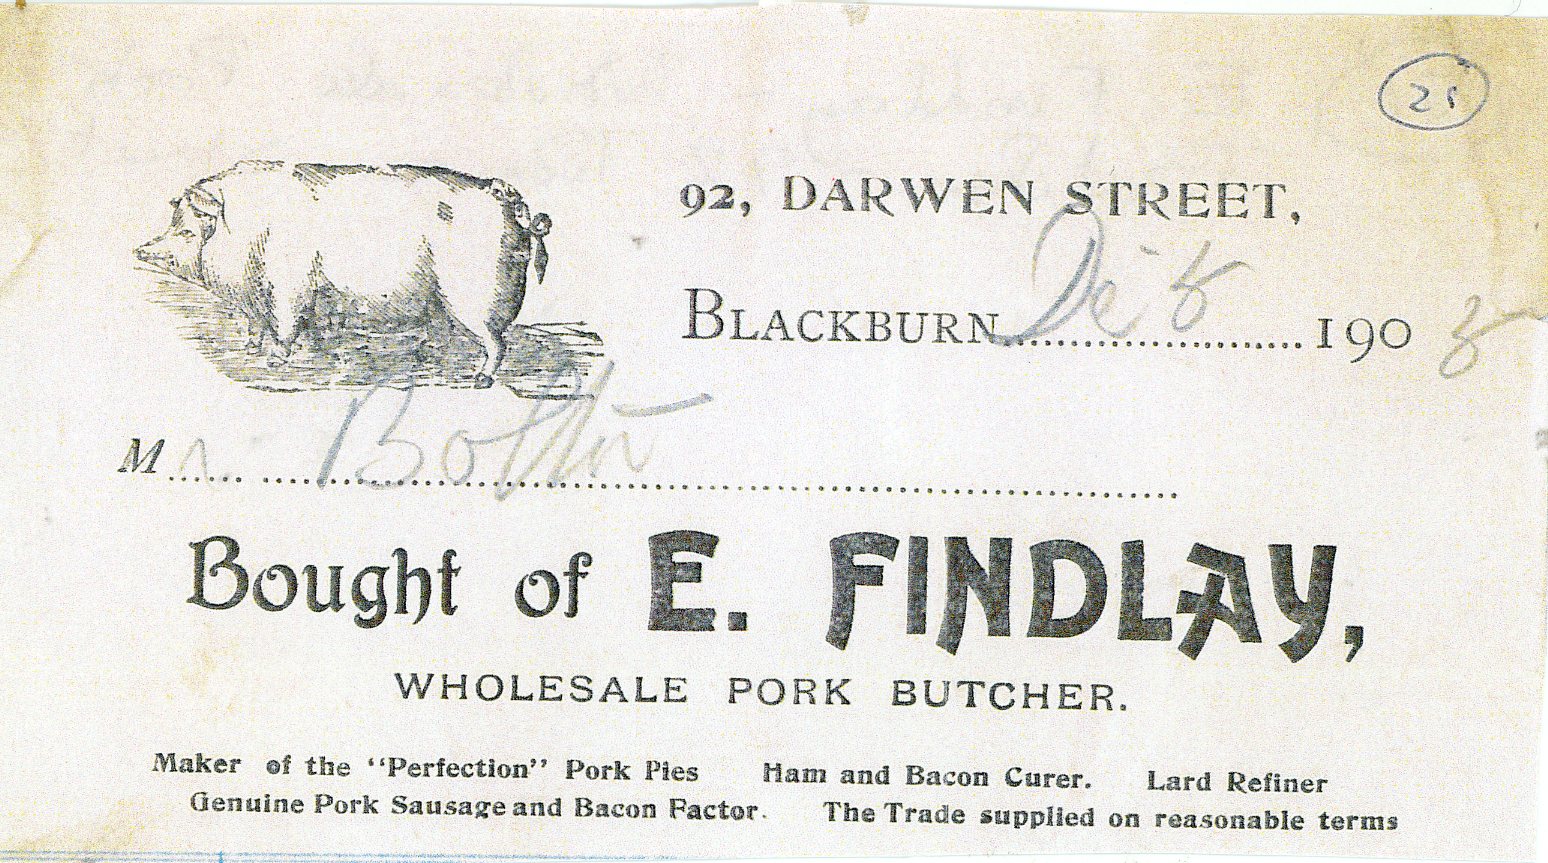 25
92, DARWEN STREET,
BLACKBURN Dec 8 1908
Mr. Bolton
Bought of E. FINDLAY,
WHOLESALE PORK BUTCHER.
Maker of the “Perfection” Pork Pies Ham and Bacon Curer. Lard Refiner
Genuine Pork Sausage and Bacon Factor. The Trade supplied on reasonable terms